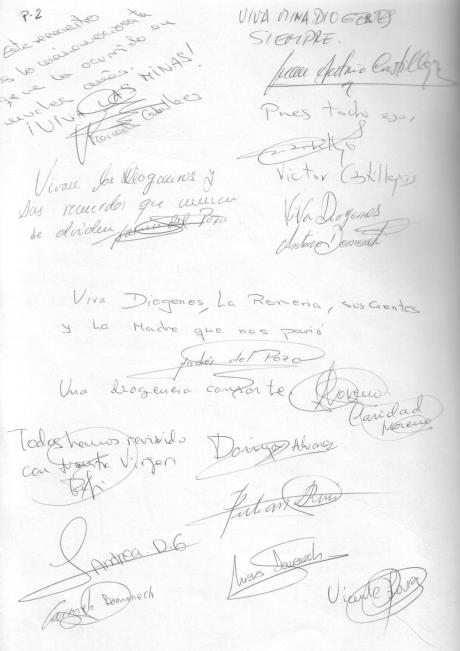 P-2
Este recuerdo
es lo más
que ha ocurrido en
muchos años.
¡VIVA LAS MINAS!
VIVA MINA DIOGENES
SIEMPRE.
Juan Antonio Castillejos
Pues todo eso,
Victor Castillejos
Vivan los Diogeneros y
sus recuerdos que nunca
se olviden
del Pozo
Viva Diogenes
Antonio Domenech
Viva Diogenes, La Romeria, sus Gentes
y La Madre que nos parió
Andrés del Pozo
Una diogenera consorte.
Moreno
Caridad
Moreno
Todos hemos revivido
con nuestra Virgen
Domingo Alvarez
Julian
Andrea D.G
Domenech
Carmelo Domenech
Vicente